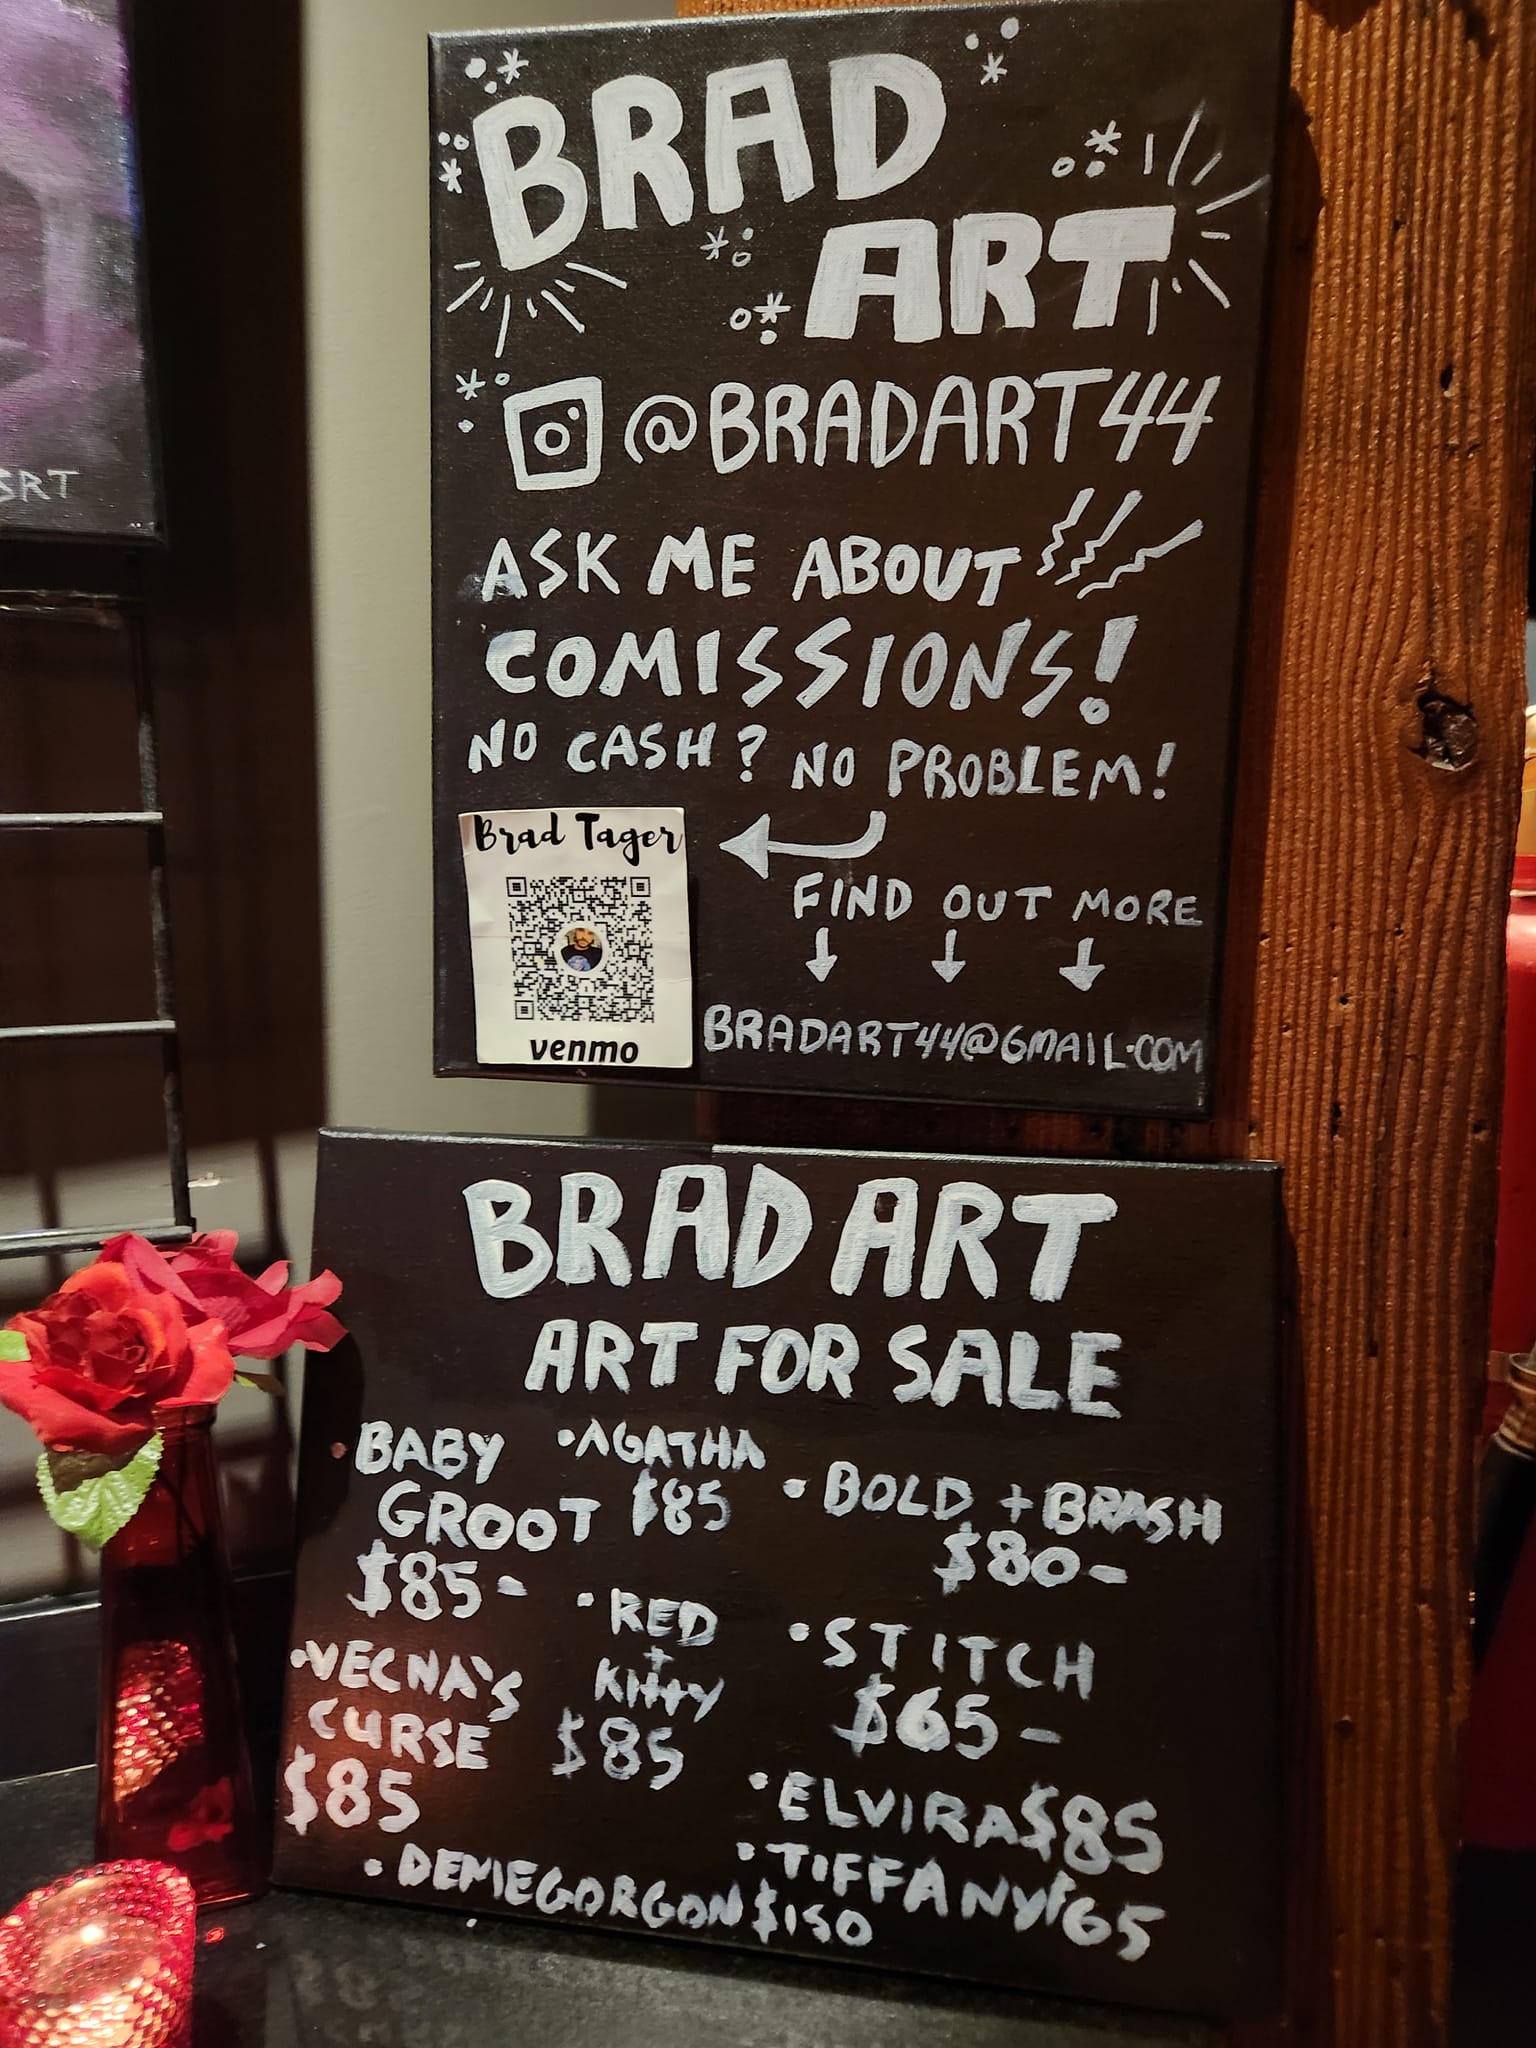 BRAD
ART
@BRADART44
ASK ME ABOUT
COMISSIONS!
NO CASH? NO PROBLEM!
Brad Tager
venmo
FIND OUT MORE
BRADART44@GMAIL.COM
BRAD ART
ART FOR SALE
BABY
GROOT
$85-
•AGATHA
$85
•BOLD + BRASH
$80-
•VECNA'S
CURSE
$85
•RED
+
KITTY
$85
•STITCH
$65-
•ELVIRA $85
•TIFFANY $65
•DEMIEGORGON $150